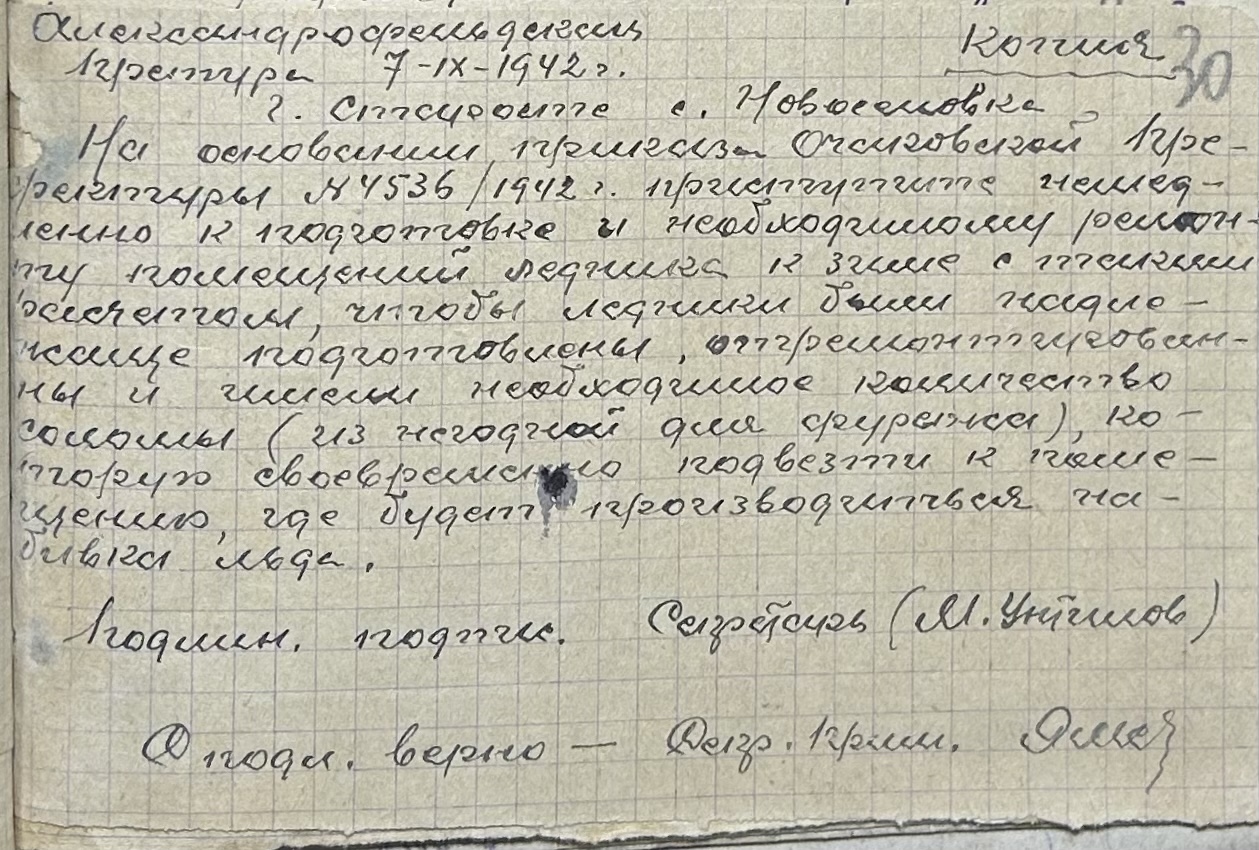 Александрофельдская
Копия 30
Претура 7-IX-1942 г.
г. Старосте с. Новоселовка
На основании приказа Очаковской Пре-
фектуры № 4536/1942 г. приступите немед-
ленно к подготовке и необходимому ремон-
ту помещений ледника к зиме с таким
расчетом, чтобы ледники были надле-
жаще подготовлены, отремонтирован-
ны и имели необходимое количество
соломы (из негодной для фуража), ко-
торую своевременно подвезти к поме-
щению, где будет производиться на-
бивка льда.
Подлин. подпис. Секретарь (М.
С подл. верно — Секр. Прим.